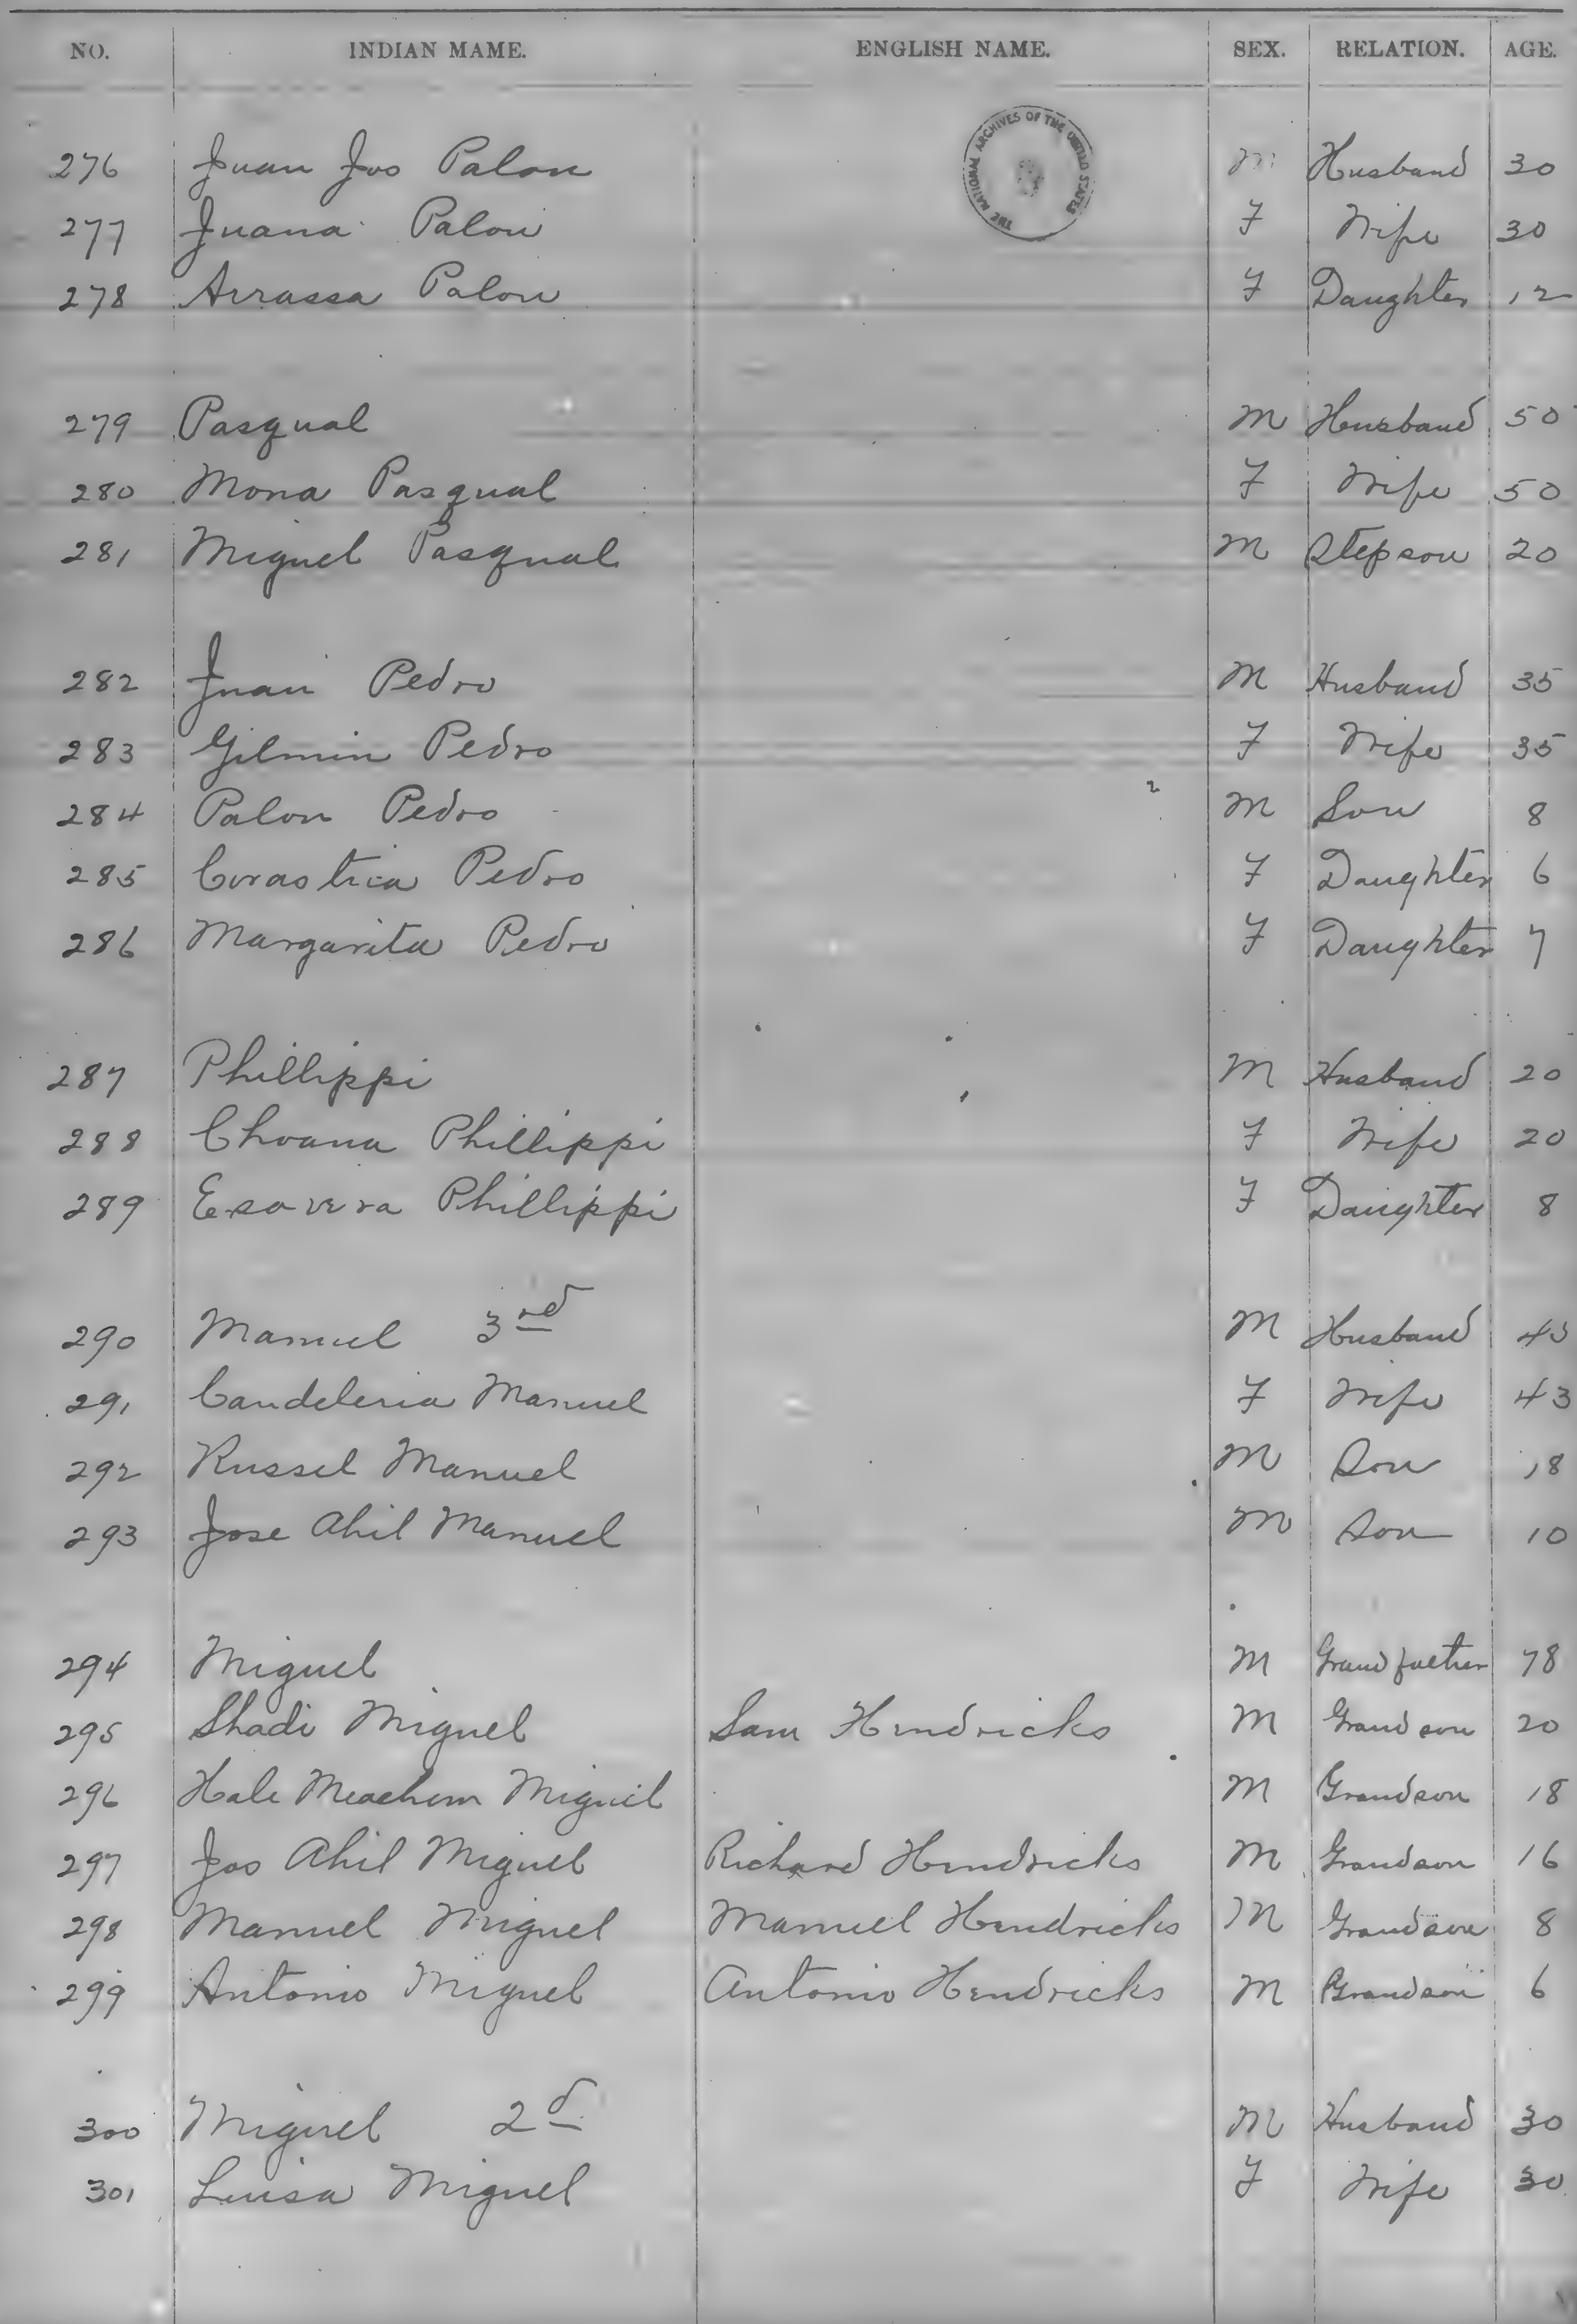 NO. INDIAN MAME. ENGLISH NAME. SEX. RELATION. AGE.
THE NATIONAL ARCHIVES OF THE UNITED STATES
276 Juan Jos Palon M Husband 30
277 Juana Palon F Wife 30
278 Arrassa Palon F Daughter 12
279 Pasqual M Husband 50
280 Mona Pasqual F Wife 50
281 Miguel Pasqual M Stepson 20
282 Juan Pedro M Husband 35
283 Gilmin Pedro F Wife 35
284 Palon Pedro M Son 8
285 Corastica Pedro F Daughter 6
286 Margarita Pedro F Daughter 7
287 Phillippi M Husband 20
288 Choana Phillippi F Wife 20
289 Phillippi F Daughter 8
290 Manuel 3rd M Husband
291 Candeleria Manuel F Wife 43
292 Russel Manuel M Son 18
293 Jose Ahil Manuel M Son 10
294 Miguel M Grandfather 78
295 Shadi Miguel Sam Hendricks M Grandson 20
296 Hale Meachem Miguel M Grandson 18
297 Jos Ahil Miguel Richard Hendricks M Grandson 16
298 Manuel Miguel Manuel Hendricks M Grandson 8
299 Antonio Miguel Antonio Hendricks M Grandson 6
300 Miguel 2d M Husband 30
301 Luisa Miguel F Wife 30